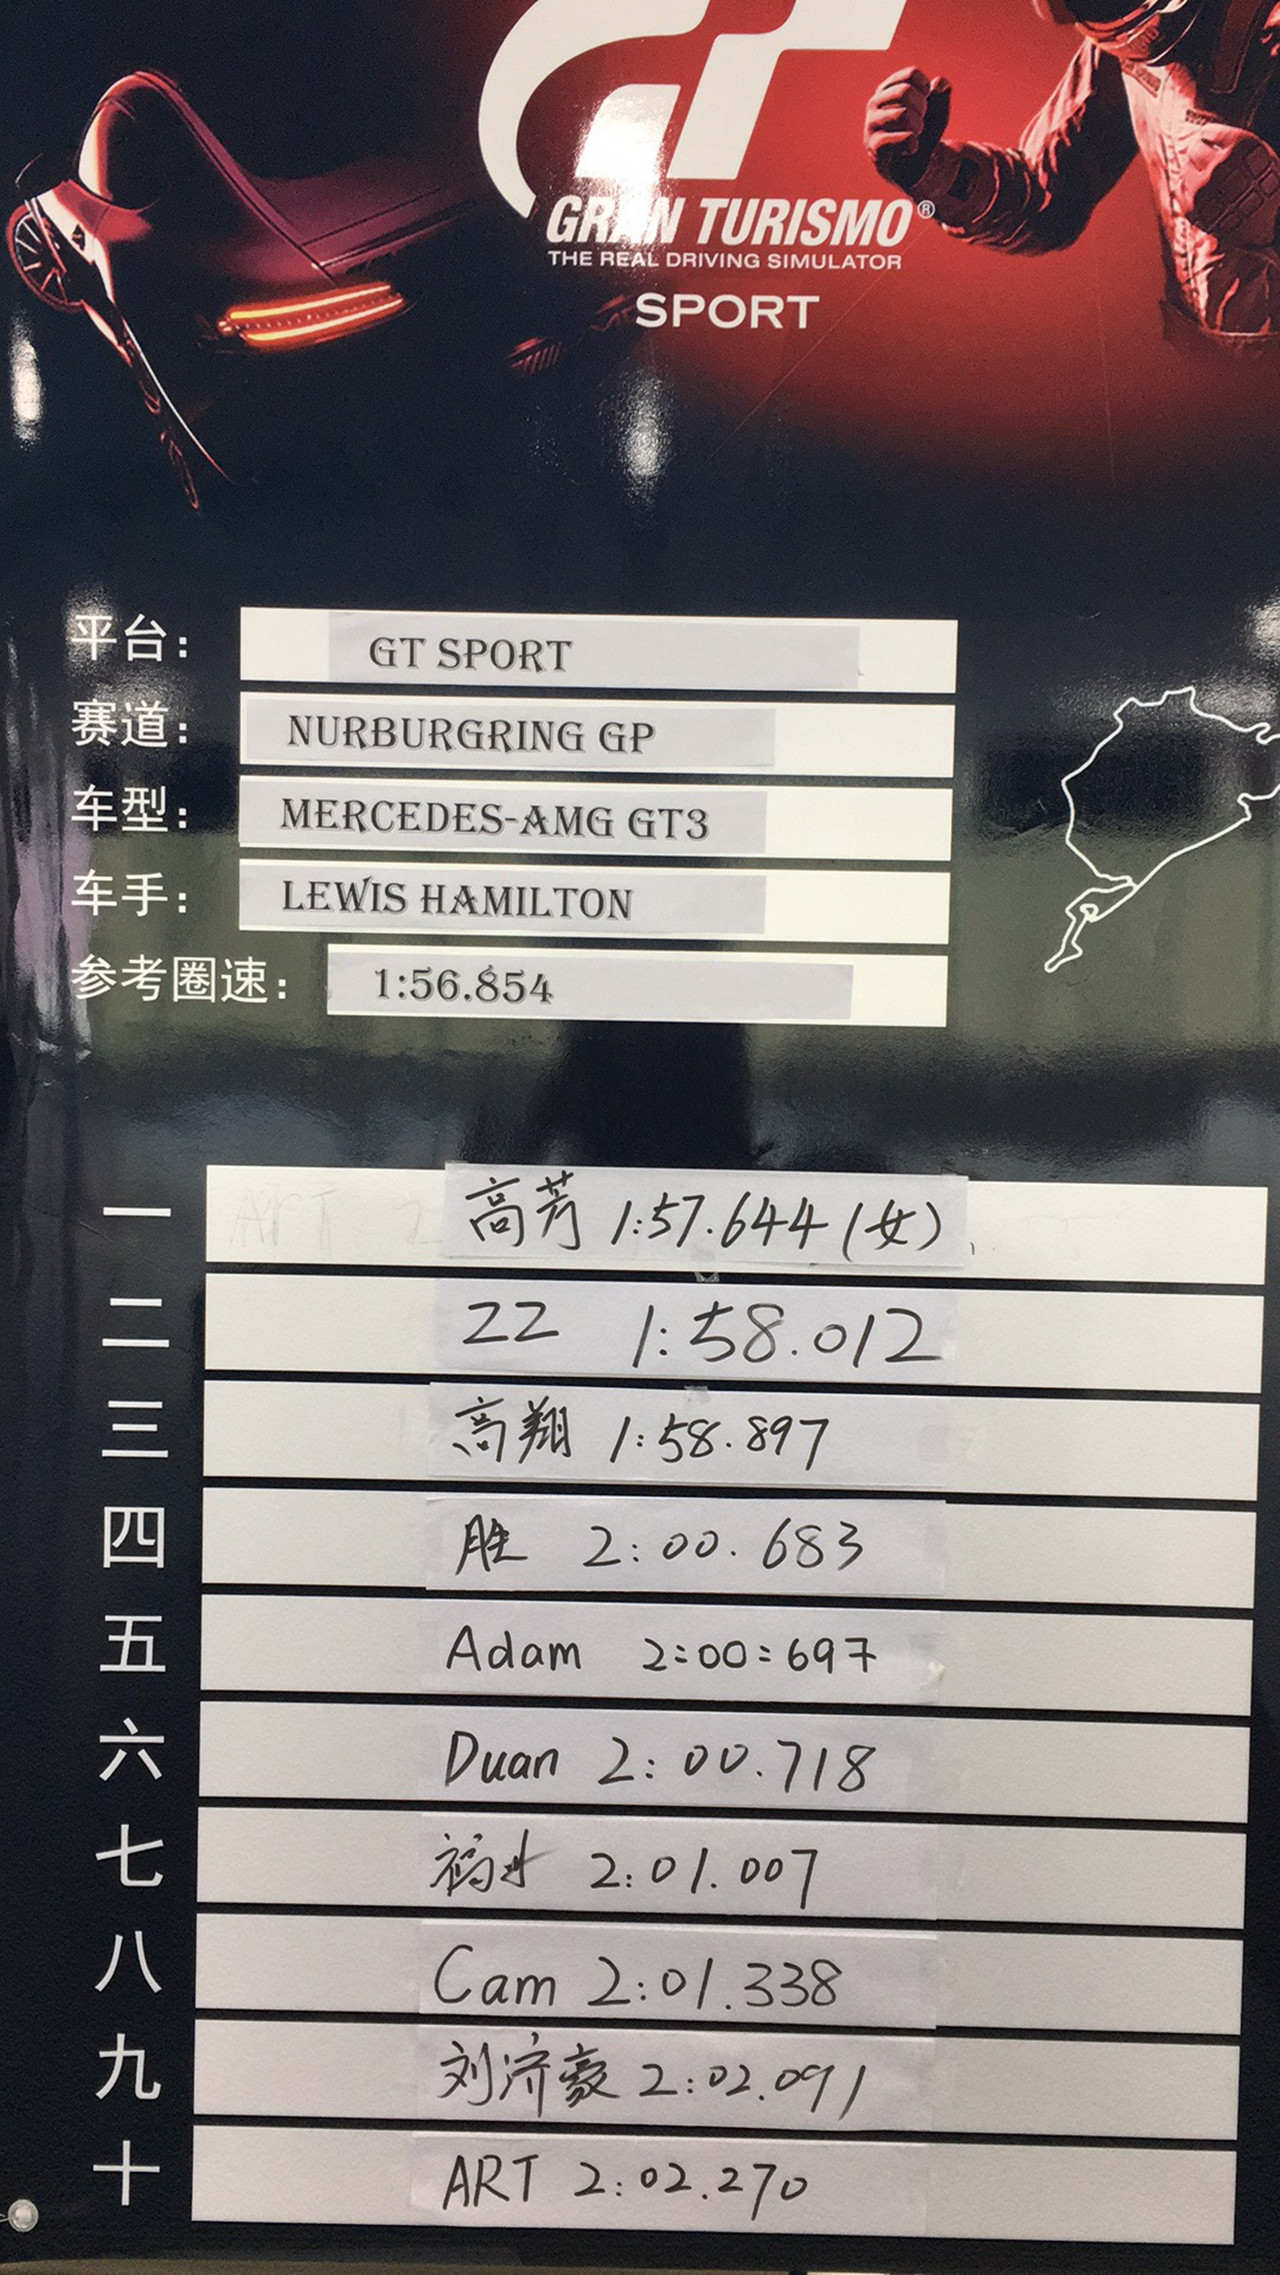 GRAN TURISMO®
THE REAL DRIVING SIMULATOR
SPORT
平台: GT SPORT
赛道: NURBURGRING GP
车型: MERCEDES-AMG GT3
车手: LEWIS HAMILTON
参考圈速: 1:56.854
一 高芳 1:57.644 (女)
二 ZZ 1:58.012
三 高翔 1:58.897
四 胜 2:00.683
五 Adam 2:00:697
六 Duan 2:00.718
七 2:01.007
八 Cam 2:01.338
九 刘济豪 2:02.091
十 ART 2:02.270